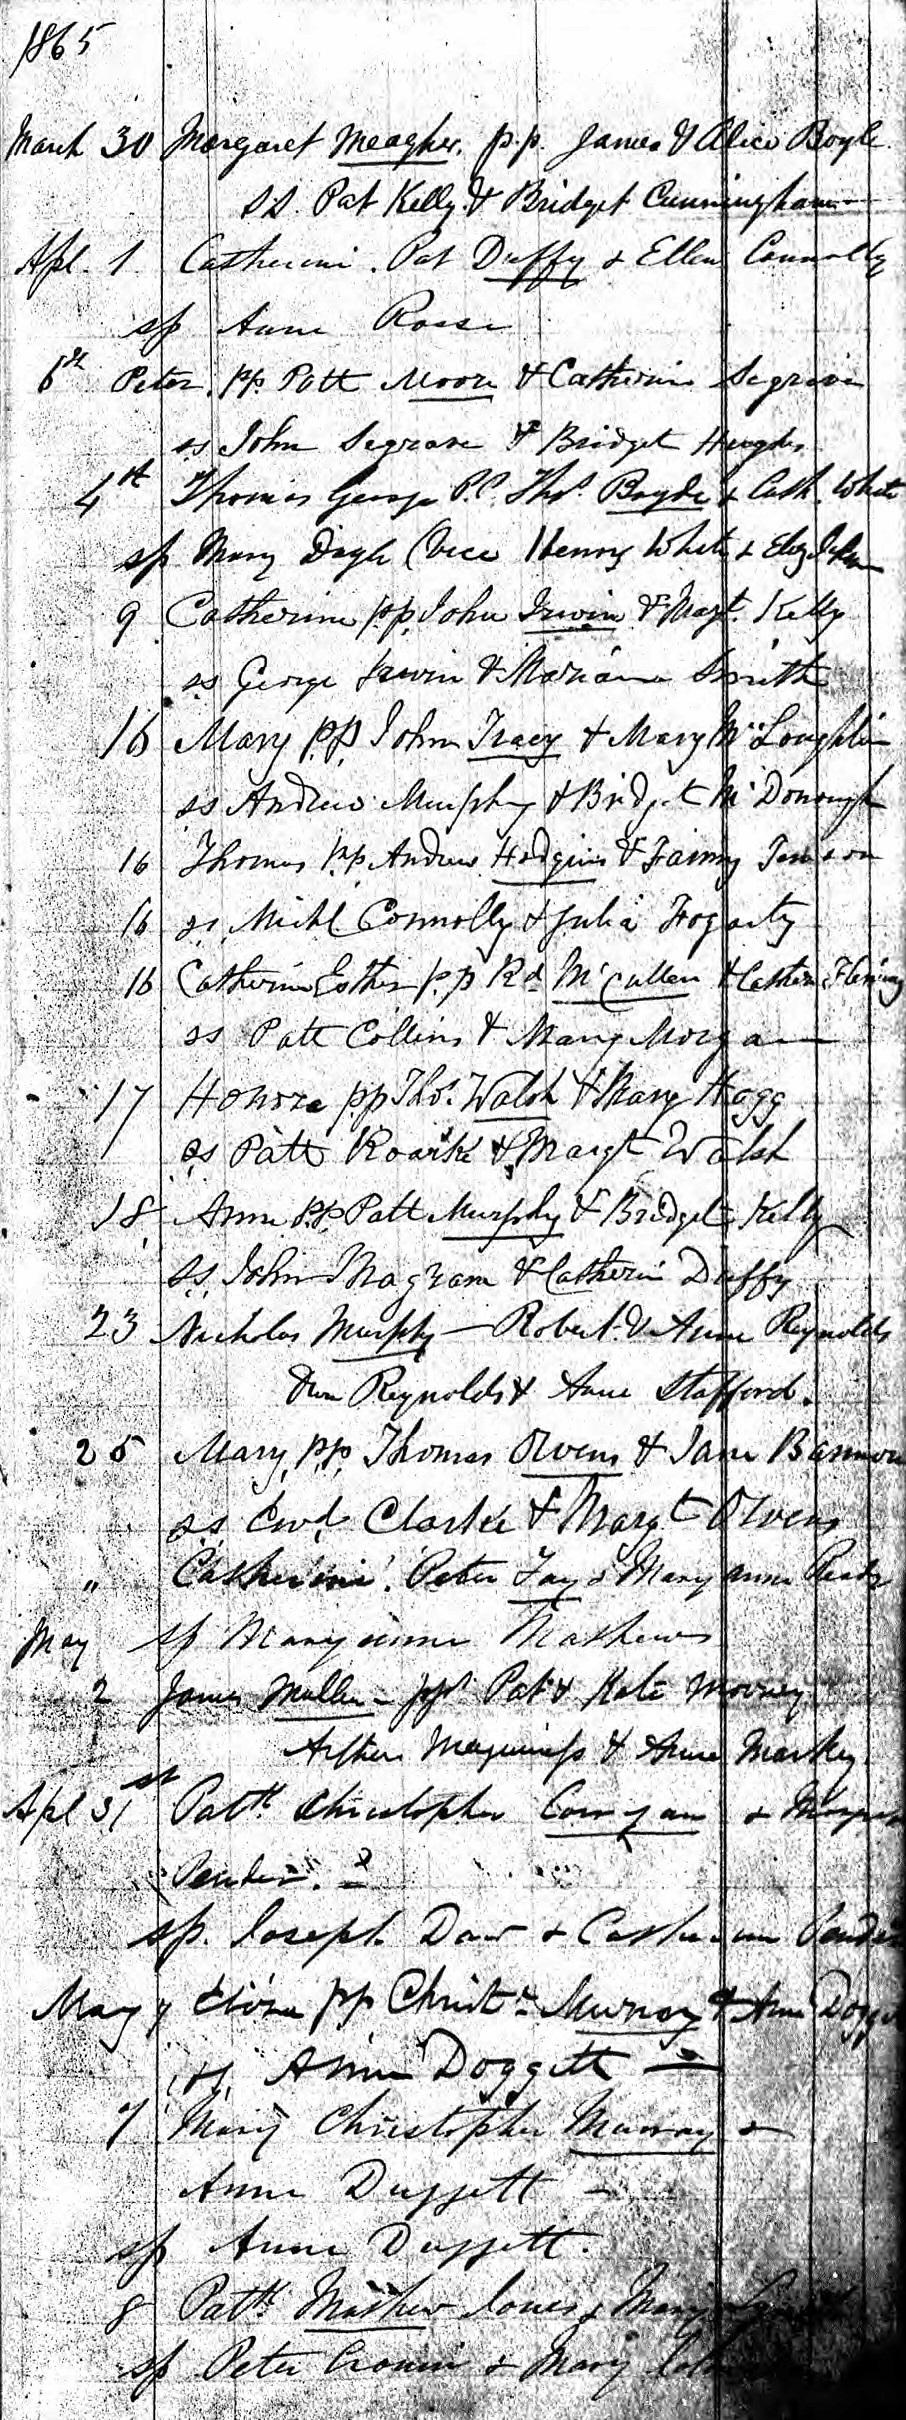 1865
March 30 Margaret Meagher. p.p. James & Alice Boyle
ss. Pat Kelly & Bridget Cunningham
Apl. 1 Catherine. Pat Duffy & Ellen Connolly
sp Anne Rosse
6th Peter. pp. Patt Moore & Catherine Segrave
ss John Segrave & Bridget Hughes
4th Thomas George P.P. Thos. Boyde & Cath. White
sp Mary Doyle (vice Henry White & Eliz
9 Catherine pp. John Irwin & Margt. Kelly
ss George Irwin & Mariane Smith
16 Mary pp. John Tracy & Mary McLoughlin
ss Andrew Murphy & Bridget McDonough
16 Thomas pp Andrew Hodgins & Fanny
16 ss. Michl Connolly & Julia Fogarty
16 Catherine Esther p.p Rd McCullen & Catherine Fleming
ss Patt Collins & Mary Morgan
17 Honora pp Thos. Walsh & Mary Hogg
ss Patt Roarke & Margt Walsh
18 Anne pp. Patt Murphy & Bridget Kelly
ss. John Magram & Catherin Duffy
23 Nicholas Murphy — Robert & Anne Reynolds
Owen Reynolds & Anne Stafford.
25 Mary pp. Thomas Owens & Jane Bannon
ss Ewd Clarke & Margt Owens
" Catherine. Peter Fay & Mary Anne Ready
May sp Maryanne Mathews
2 James Mullen — pps Pat & Kate Mooney
Arthur Maguiness & Anne Markey.
Apl 31st Patk Christopher Corrigan &
Pender. 2
sp. Joseph Daw & Catherine Pender
May 7 Eliza pp Christr Murray & Anne Doggett
ss. Anne Doggett —
7 Mary Christopher Murray &
Anne Duggett —
sp Anne Duggett.
8 Patk Mathew Jones & Mary
sp Peter Cronin & Mary